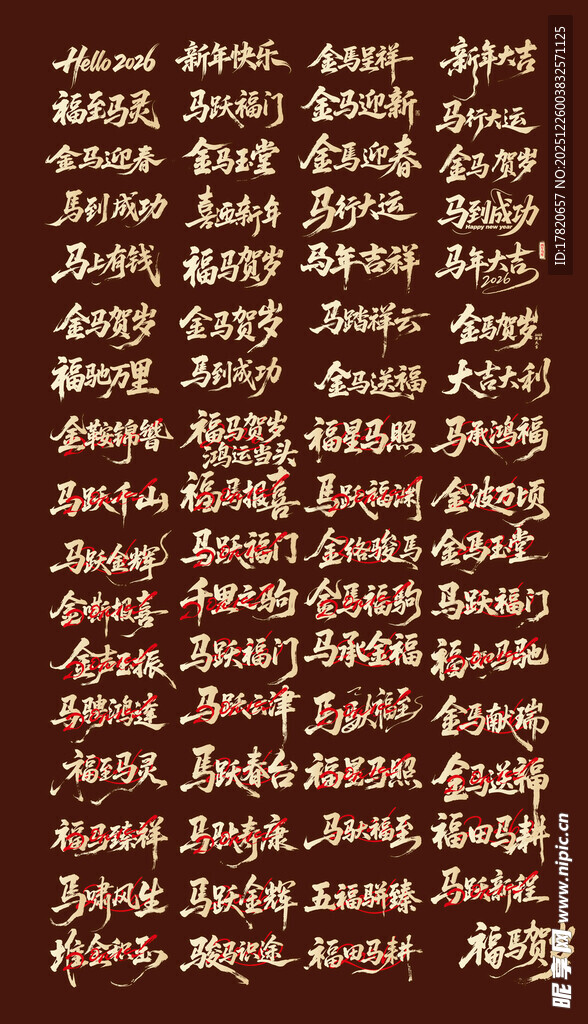 Hello 2026 新年快乐 金馬呈祥 新年大吉
福至马灵 马跃福门 金马迎新 马行大运
金马迎春 金马玉堂 金馬迎春 金马贺岁
馬到成功 喜迎新年 马行大运 马到成功
Happy new year
马上有钱 福马贺岁 马年吉祥 马年大吉
2026
金马贺岁 金马贺岁 马踏祥云 金马贺岁
福驰万里 马到成功 金马送福 大吉大利
金鞍锦辔 福马贺岁 福星马照 马承鸿福
鸿运当头
马跃千山 福马报喜 馬跃福渊 金波万顷
马跃金辉 马跃福门 金络骏马 金马玉堂
金嘶报喜 千里之驹 金馬福驹 马跃福门
金声玉振 马跃福门 马承金福 福 马驰
马骋鸿達 马跃 津 马 福至 金马献瑞
福至马灵 馬跃春台 福星马照 金马送福
福马臻祥 马 寿康 马驮福至 福田马耕
馬啸风生 马跃金辉 五福骈臻 马跃新程
堆金积玉 骏马识途 福田马耕 福马贺
昵享网 www.nipic.cn
ID:17820657 NO:20251226003832571125